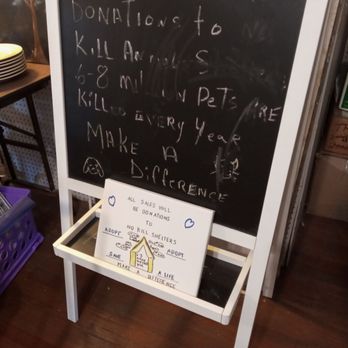 DONATIONS to NO
KILL
6-8 million Pets ARE
Killed EVERY Year
MAKE A
Difference
ALL SALES WILL
BE DONATIONS
TO
NO KILL SHELTERS
ADOPT ADOPT
SAVE A LIFE
MAKE A DIFFERENCE